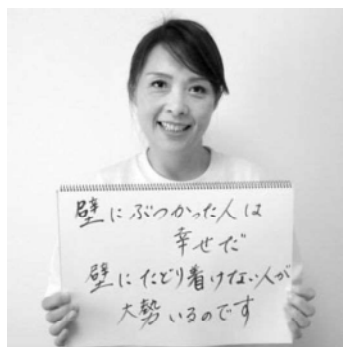 壁にぶつかった人は
幸せだ
壁にたどり着けない人が
大勢いるのです